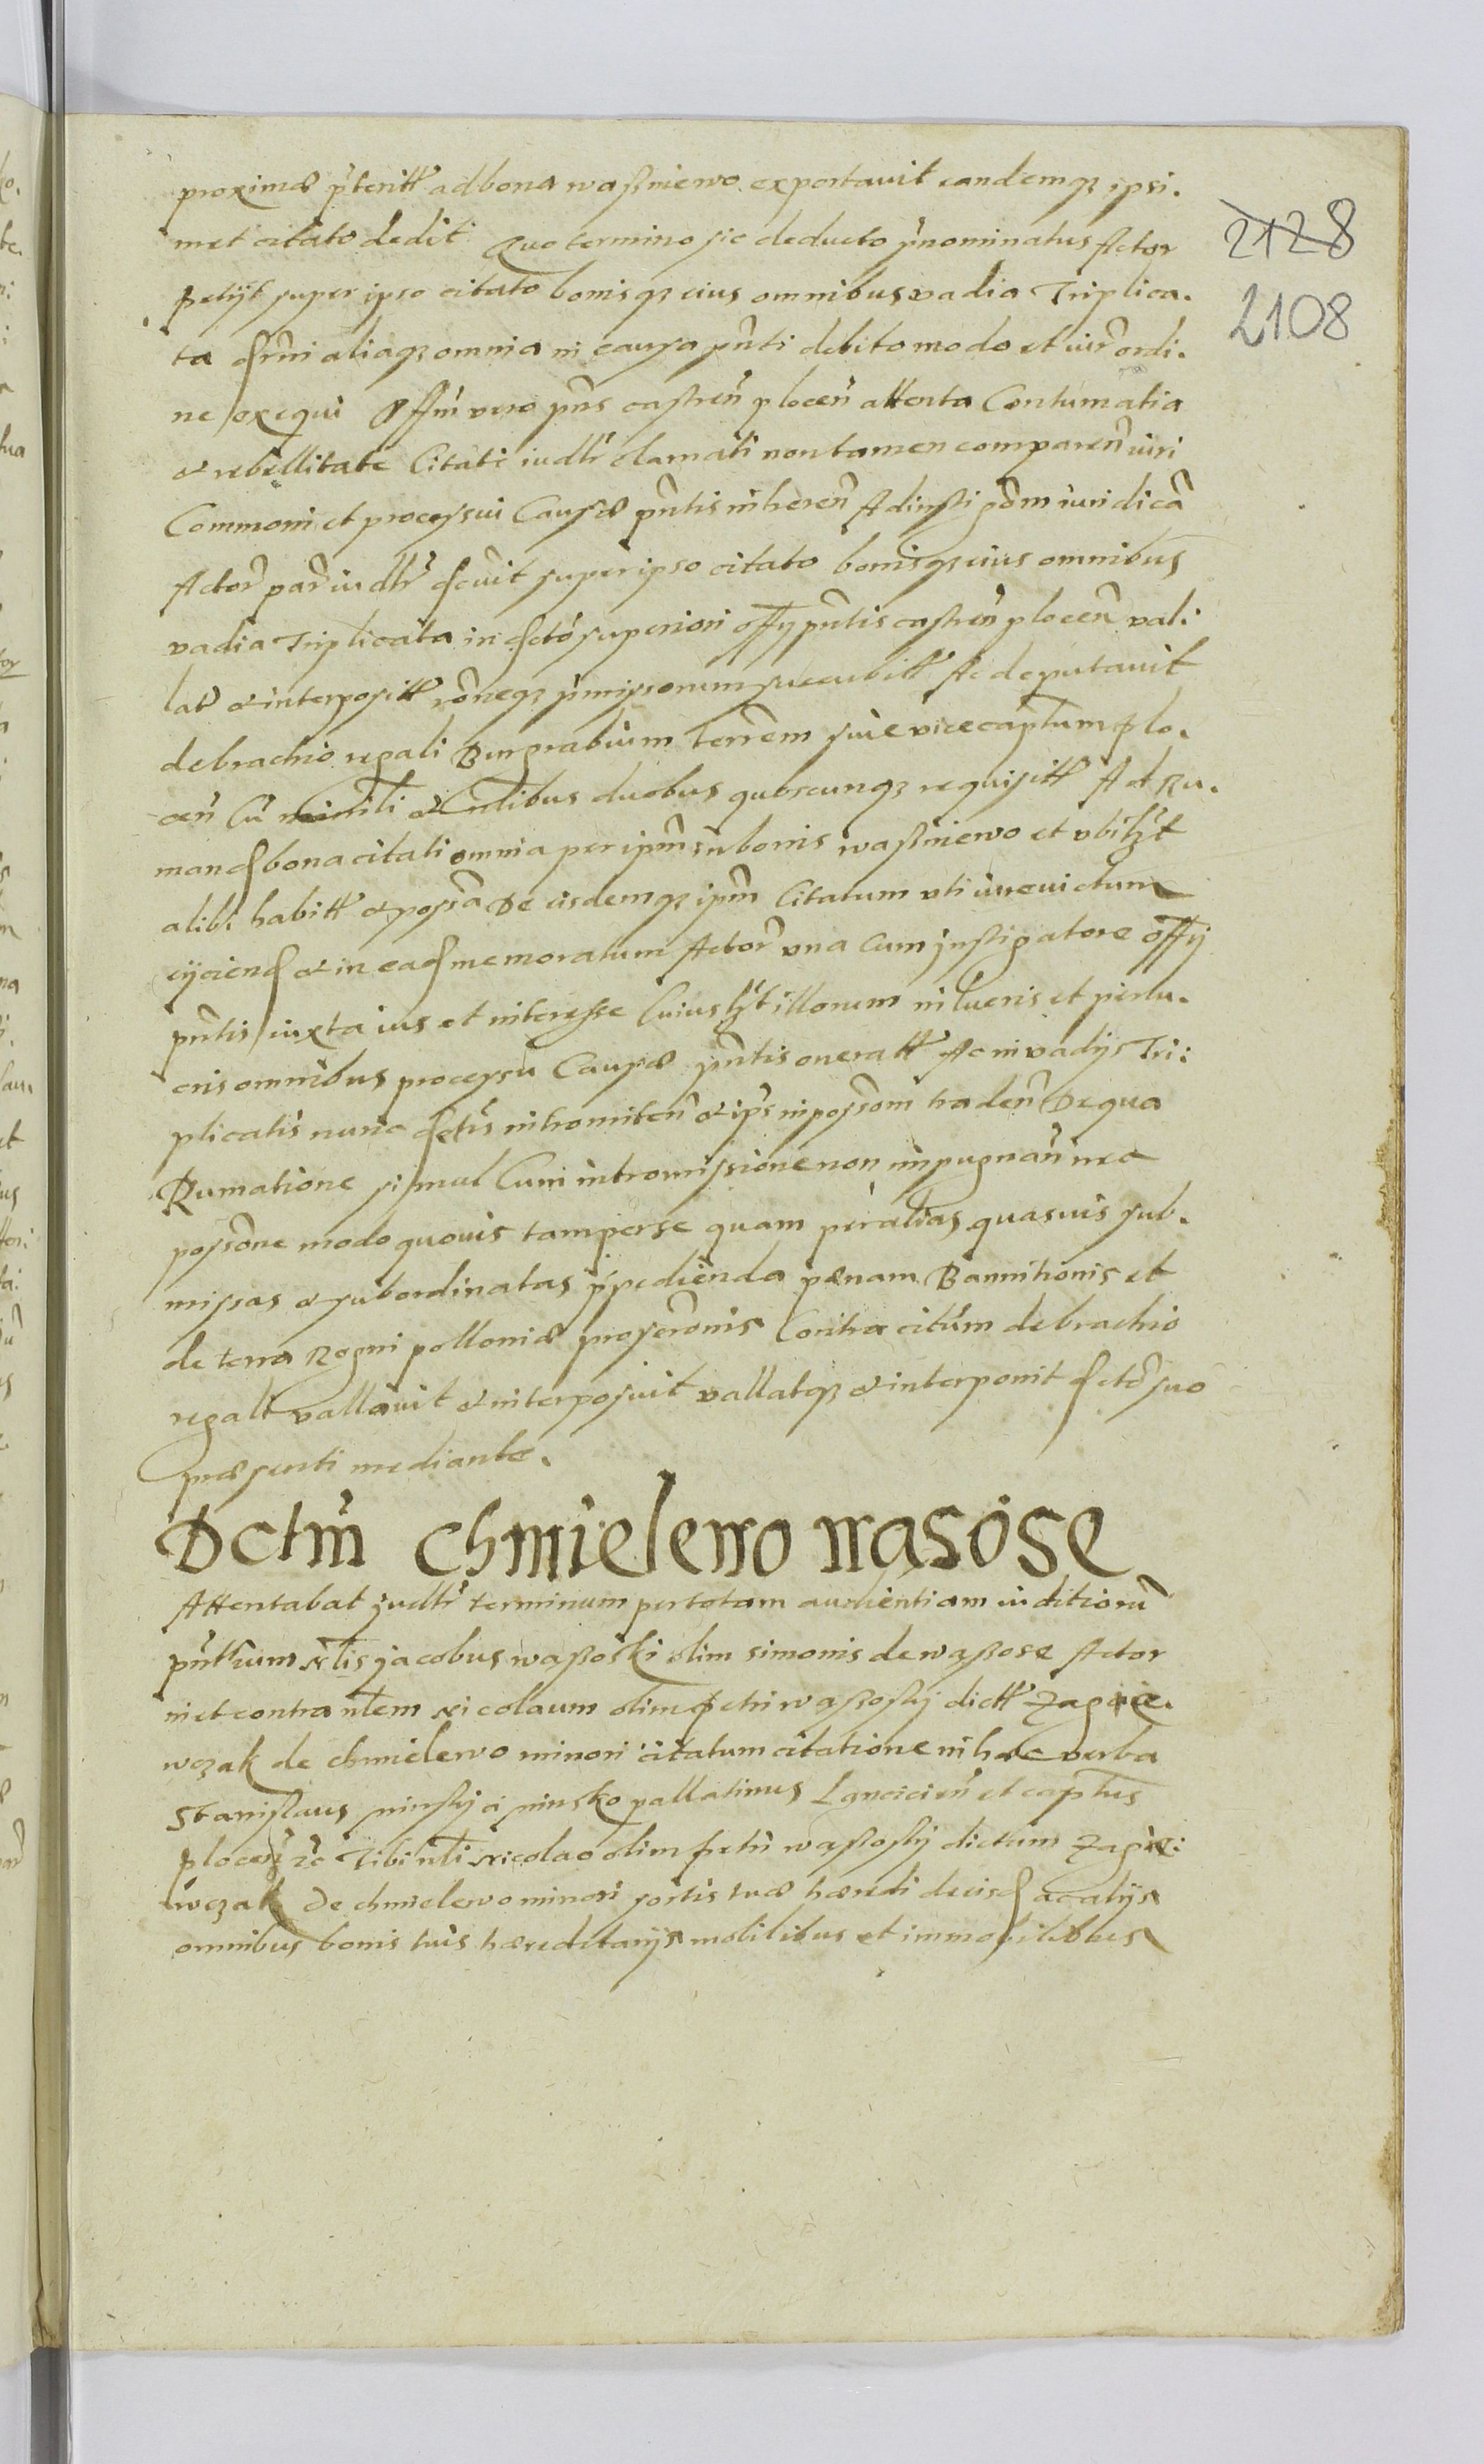 proximæ p̃teritt ad bona waßniewo exportavit eandemqȝ ipsi.
met citato dedit Quo termino sic deducto p̃nominatus Actor
petijt super ipso citato bonisqȝ eius omnibus vadia Triplica.
ta aliaqȝ omnia in causa pñti debito modo et iur̃ ordi.
ne exequi Offm̃ vero pñs castreñ ploceñ attenta Contumatia
& rebellitate Citati iudtr̃ clamati non tamen compareñ iuri
Commoni et processui Causæ pñtis inhereñ Ad insti gõm iuridicã
Actor̃ par̃ iudtr̃ super ipso citato bonisqȝ eius omnibus
vadia Triplicata in superiori offy pñtis castreñ ploceñ val.
lat & interpositt rõneqȝ p̃missorum succubitt Ac deputavit
de brachio regali Burgrabium terrem sive vicecaptum plo.
ceñ Cũ duobus quibuscunqȝ requisitt Ad Ru.
mand bona citati omnia per ipm̃ in bonis waßniewo et ubilȝt
alibi habitt & possa De eisdemqȝ ipm̃ Citatum uti iure victum
eijciend & in ead memoratum Actor̃ una Cum instigatore offy
pñtis iuxta ius et interesse Cuiuslȝt illorum in lucris et perlu.
cris omnibus processu Causæ pñtis oneratt Ac in vadijs Tri:
plicatis nunc intromiteñ & ips in possõm tradeñ De qua
Rumatione simul Cum intromissione non impugnañ nec
possõne modo quovis tam per se quam per alias quasvis sub.
missas & subordinatas p̃pedienda pænam Bannitionis et
de terra Regni polloniæ Contra citũm de brachio
regali vallavit & interposuit vallatqȝ & interponit suo
præsenti mediante.
Dctm̃ Chmielewo wasose
Attentabat judtr̃ terminum per totam audientiam iuditiorũ
pñtium Nlis jacobus waßoski olim simonis de waßose Actor
in et contra nlem Nicolaum olim petri waßosky dictt Zagaie.
wczak de chmielewo minori citatum citatione in hæc verba
Stanislaus minsky a minsko pallatinus Lancicieñ et captus
ploceñ &c Tibi nli Nicolao olim petri waßosky dictum Zagai:
wczak De chmielewo minori sortis tuæ hæredi deeisd ac alijs
omnibus bonis tuis hæreditarijs mobilibus et immobilibus
2128
2108